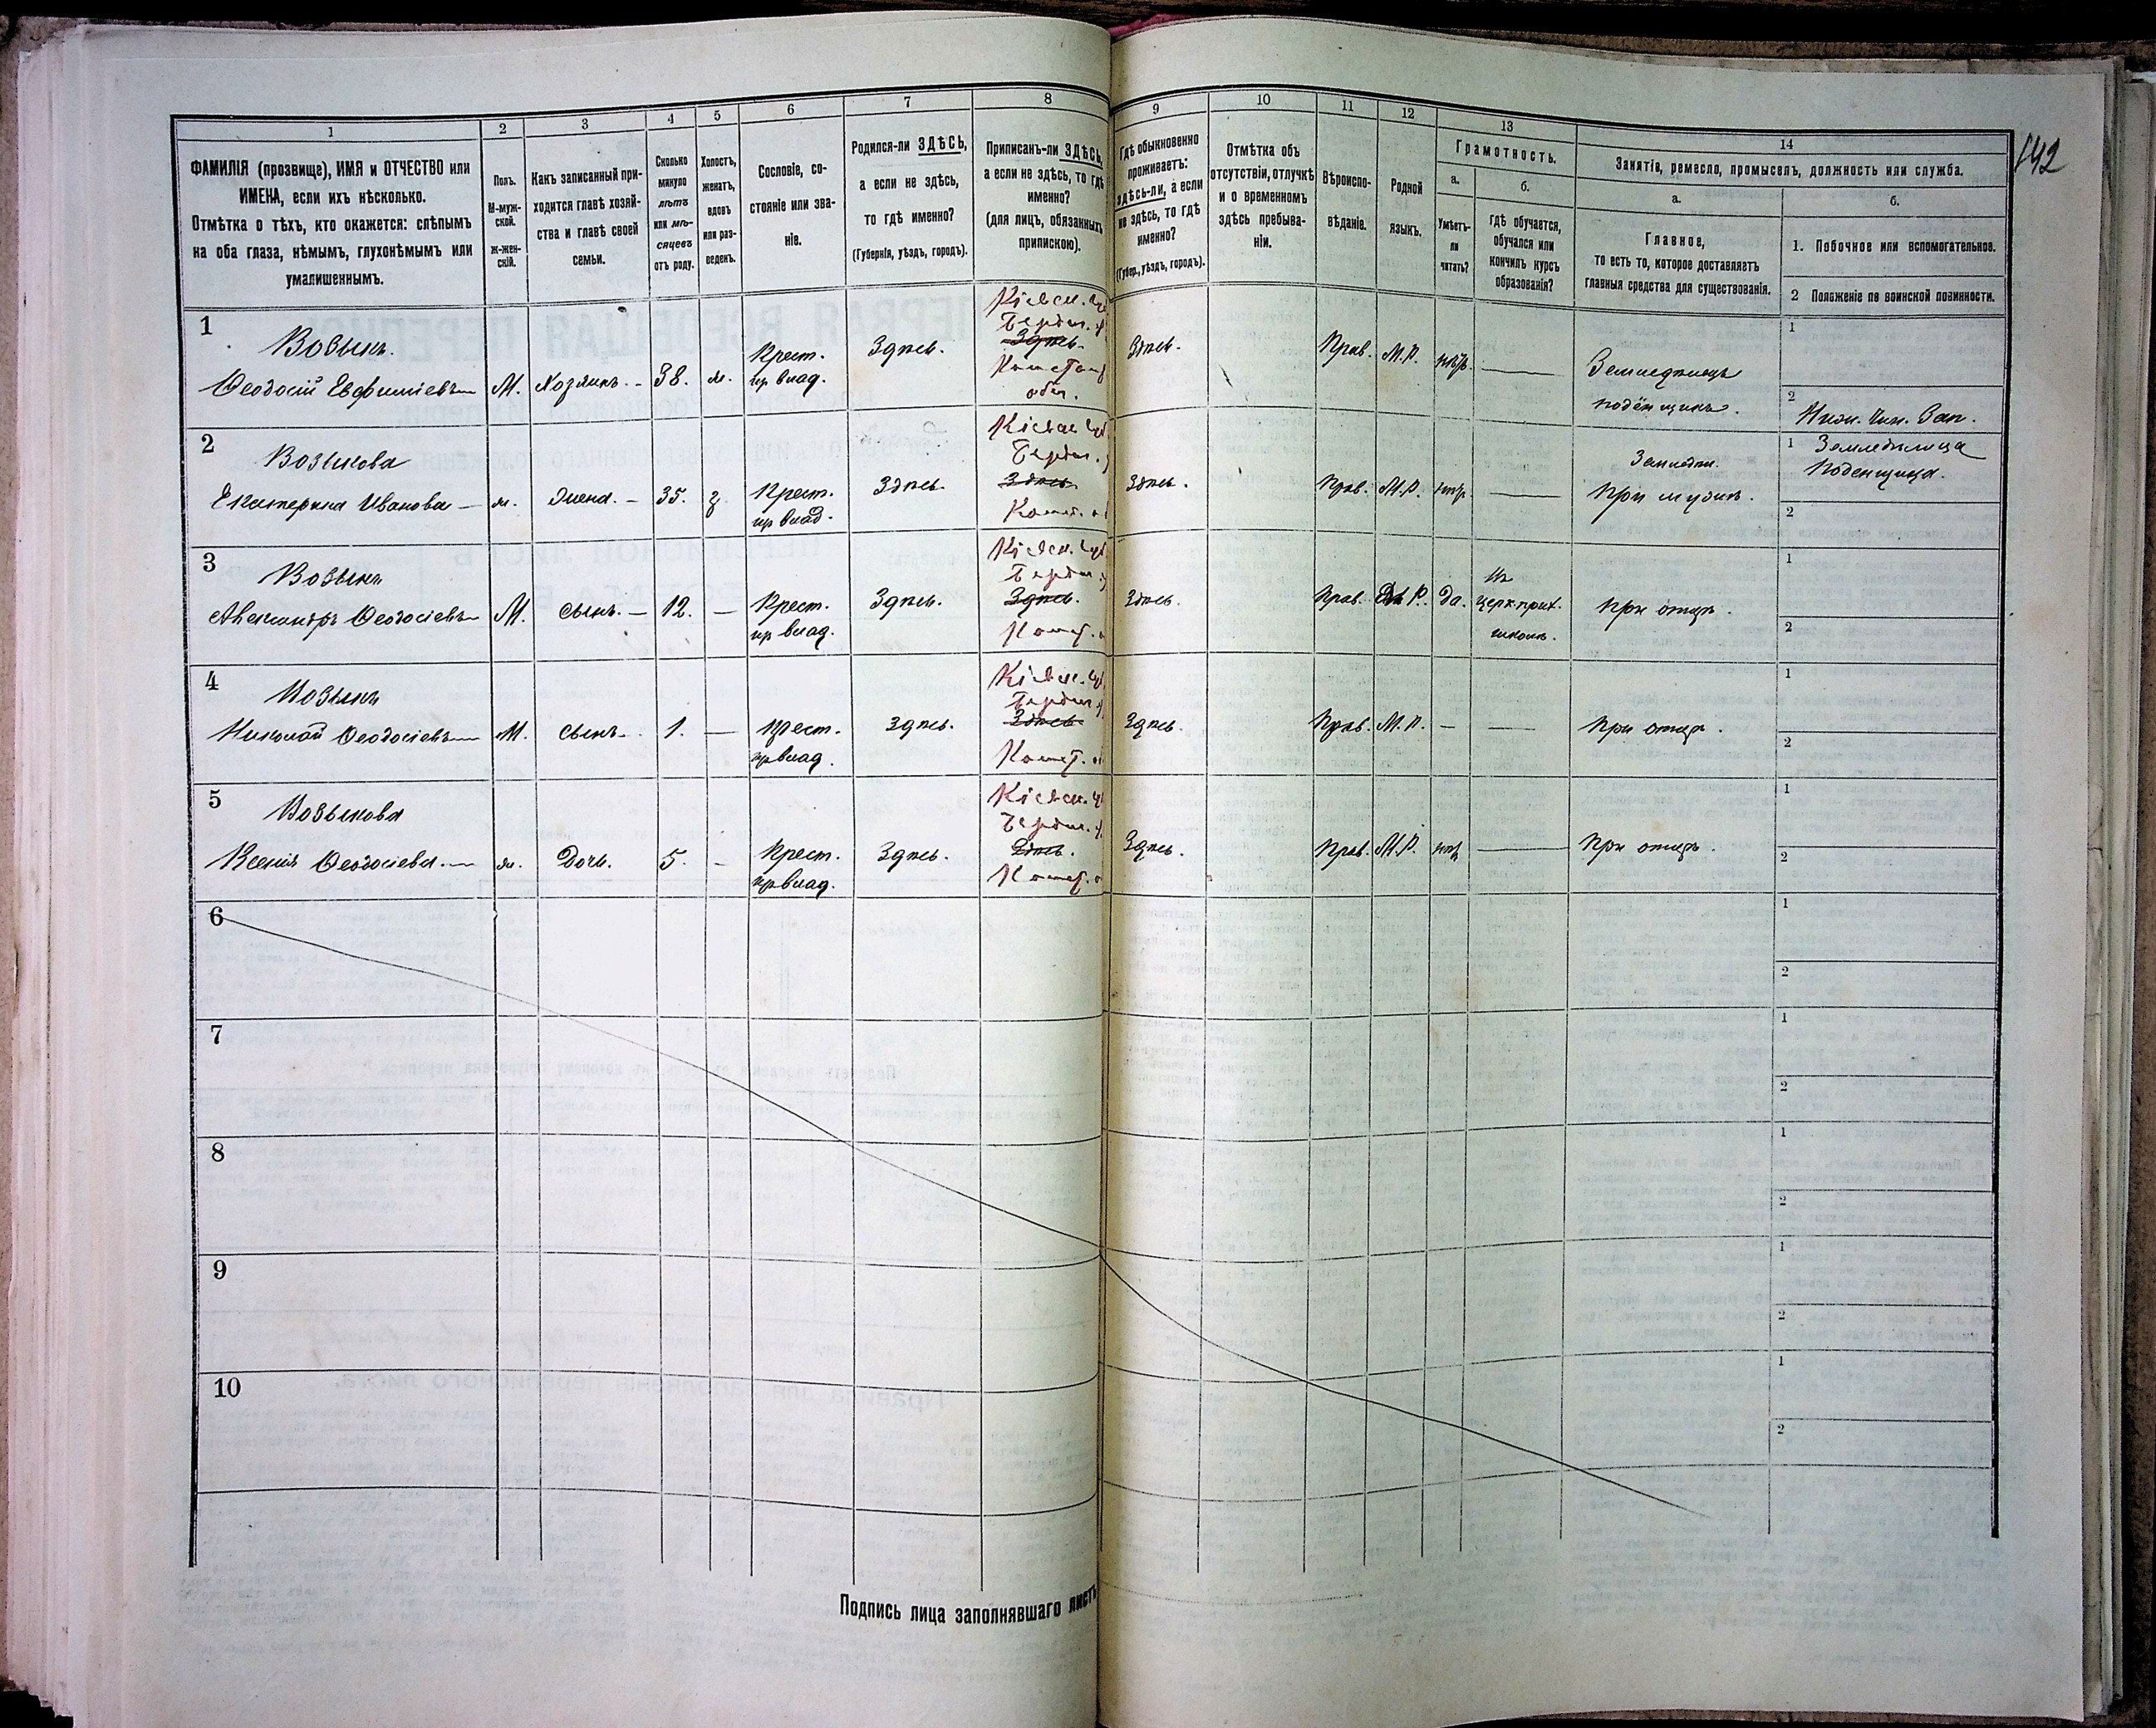 142
1
2
3
4
5
6
7
8
9
10
11
12
13
14
ФАМИЛІЯ (прозвище), ИМЯ и ОТЧЕСТВО или
ИМЕНА, если ихъ нѣсколько.
Отмѣтка о тѣхъ, кто окажется: слѣпымъ
на оба глаза, нѣмымъ, глухонѣмымъ или
умалишеннымъ.
Полъ.
М-муж-
ской.
ж-жен-
скій.
Какъ записанный при-
ходится главѣ хозяй-
ства и главѣ своей
семьи.
Сколько
минуло
лѣтъ
или мѣ-
сяцевъ
отъ роду.
Холостъ,
женатъ,
вдовъ
или раз-
веденъ.
Сословіе, со-
стояніе или зва-
ніе.
Родился-ли ЗДѢСЬ,
а если не здѣсь,
то гдѣ именно?
(Губернія, уѣздъ, городъ).
Приписанъ-ли ЗДѢСЬ,
а если не здѣсь, то гдѣ
именно?
(для лицъ, обязанныхъ
припискою).
Гдѣ обыкновенно
проживаетъ:
здѣсь-ли, а если
не здѣсь, то гдѣ
именно?
(Губер., уѣздъ, городъ).
Отмѣтка объ
отсутствіи, отлучкѣ
и о временномъ
здѣсь пребыва-
ніи.
Вѣроиспо-
вѣданіе.
Родной
языкъ.
Грамотность.
а.
Умѣетъ-
ли
читать?
б.
гдѣ обучается,
обучался или
кончилъ курсъ
образованія?
Занятія, ремесло, промыселъ, должность или служба.
а.
Главное,
то есть то, которое доставляетъ
главныя средства для существованія.
б.
1. Побочное или вспомогательное.
2 Положеніе по воинской повинности.
1
Возыкъ.
Ѳеодосій Евфиміевъ
М.
Хозяинъ.
38.
ж.
Крест.
пр влад.
Здѣсь.
Кіевск. Губ
Бердич. у
Здѣсь.
общ.
Здѣсь.
Прав.
М.Р.
нѣтъ.
Земледѣлецъ
подёнщикъ.
1
2
Ниж. Чин. Зап.
2
Возыкова
Екатерина Иванова
ж.
Жена.
35.
з.
Крест.
пр влад.
Здѣсь.
Кіевск Губ
Бердич.
Здѣсь
Здѣсь.
Прав.
М.Р.
нѣт.
Земледѣл.
При мужѣ.
1
Земледѣлица
Поденщица.
2
3
Возыкъ
Александръ Ѳеодосіевъ
М.
сынъ.
12.
Крест.
пр влад.
Здѣсь.
Кіевск. Губ
Бердич. у
Здѣсь.
Здѣсь.
Прав.
Р.
да.
Въ
Церк прих.
школѣ.
При отцѣ.
1
2
4
Возыкъ
Николай Ѳеодосіевъ
М.
сынъ.
1.
Крест.
пр влад.
Здѣсь.
Кіевск. Губ
Бердич. у
Здѣсь
Здѣсь.
Прав.
М.Р.
При отцѣ.
1
2
5
Возыкова
Ксенія Ѳеодосіева.
ж.
Дочь.
5.
Крест.
пр влад.
Здѣсь.
Кіевск. Губ
Бердич. у.
Здѣсь.
Здѣсь.
Прав.
М.Р.
нѣт
При отцѣ.
1
2
6
1
2
7
1
2
8
1
2
9
1
2
10
1
2
Подпись лица заполнявшаго листъ